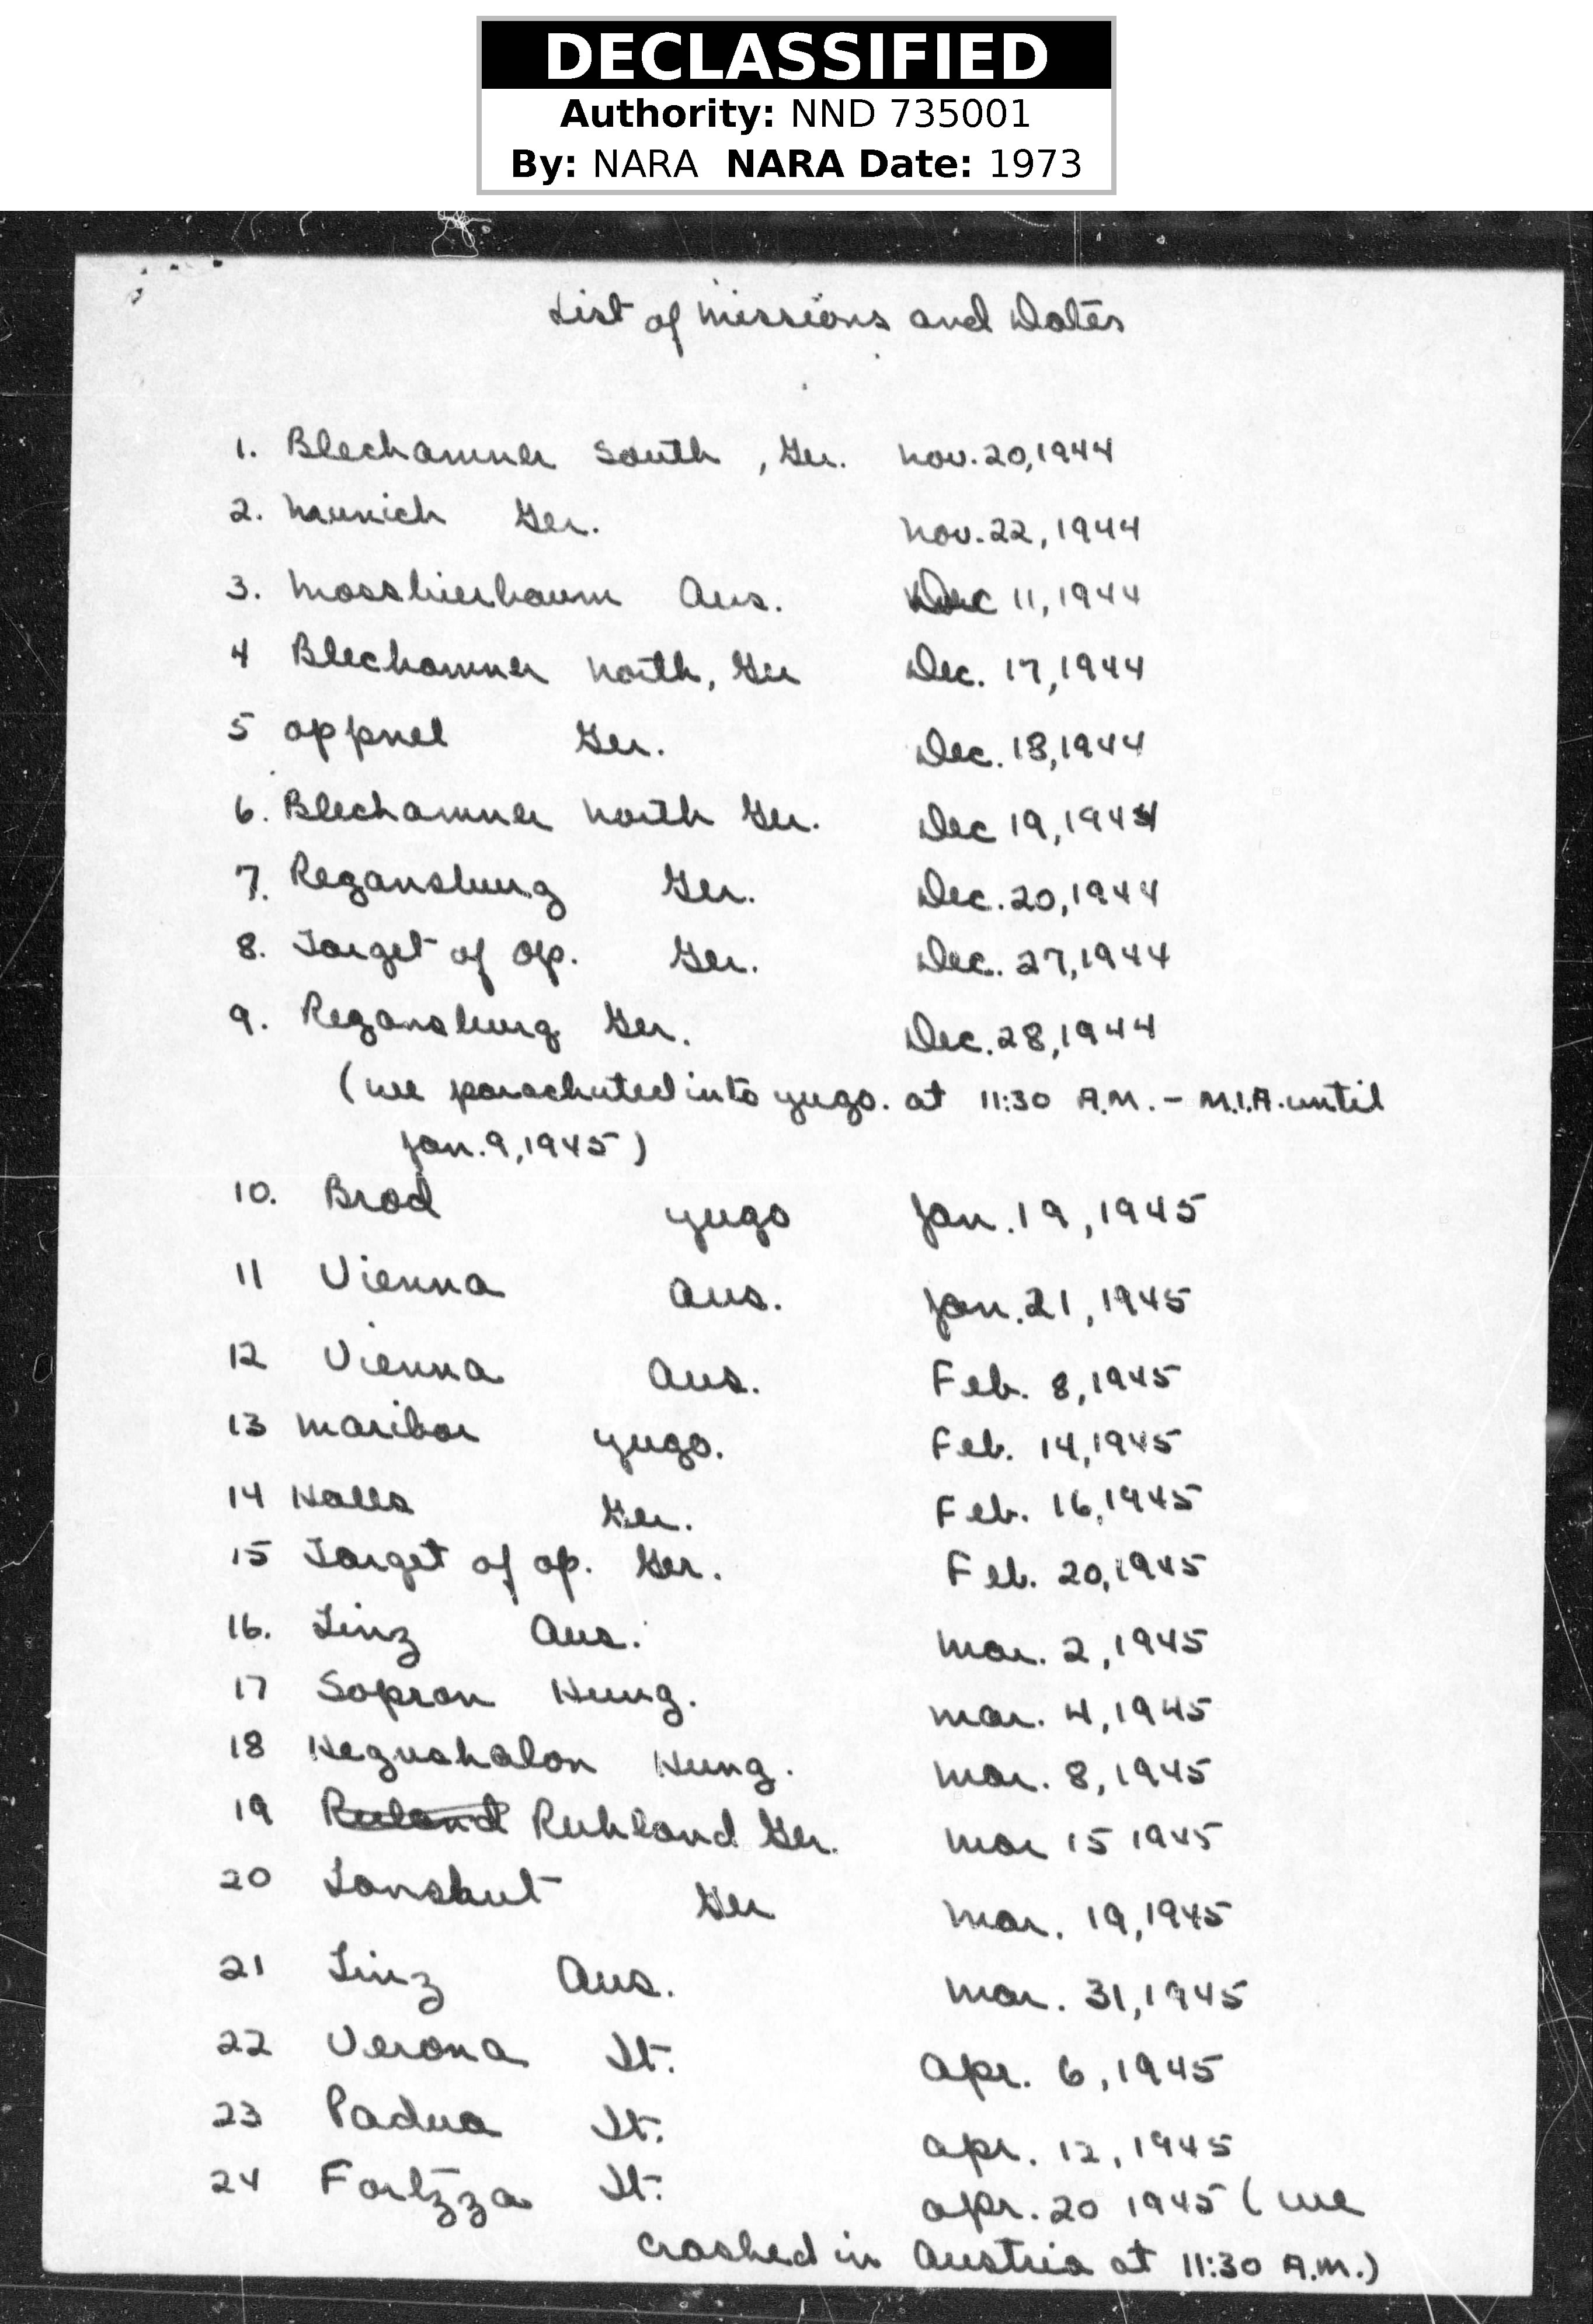 DECLASSIFIED
Authority: NND 735001
By: NARA NARA Date: 1973
List of Missions and Dates
1. Blechamner South, Ger. Nov. 20, 1944
2. Munich Ger. Nov. 22, 1944
3. Moosbierbaum Aus. Dec 11, 1944
4 Blechamner North, Ger Dec. 17, 1944
5 Oppnel Ger. Dec. 18, 1944
6. Blechamner North Ger. Dec 19, 1944
7. Regansburg Ger. Dec. 20, 1944
8. Target of Op. Ger. Dec. 27, 1944
9. Regansburg Ger. Dec. 28, 1944
(we parachuted into Yugo. at 11:30 A.M. - M.I.A. until
Jan. 9, 1945)
10. Brod Yugo Jan. 19, 1945
11 Vienna Aus. Jan. 21, 1945
12 Vienna Aus. Feb. 8, 1945
13 Maribor Yugo. Feb. 14, 1945
14 Halls Ger. Feb. 16, 1945
15 Target of Op. Ger. Feb. 20, 1945
16. Linz Aus. Mar. 2, 1945
17 Sopron Hung. Mar. 4, 1945
18 Hegushalon Hung. Mar. 8, 1945
19 Ruland Ruhland Ger. Mar 15 1945
20 Lanshut Ger Mar. 19, 1945
21 Linz Aus. Mar. 31, 1945
22 Verona It. Apr. 6, 1945
23 Padua It. Apr. 12, 1945
24 Fortzza It. Apr. 20 1945 (we
crashed in Austria at 11:30 A.M.)